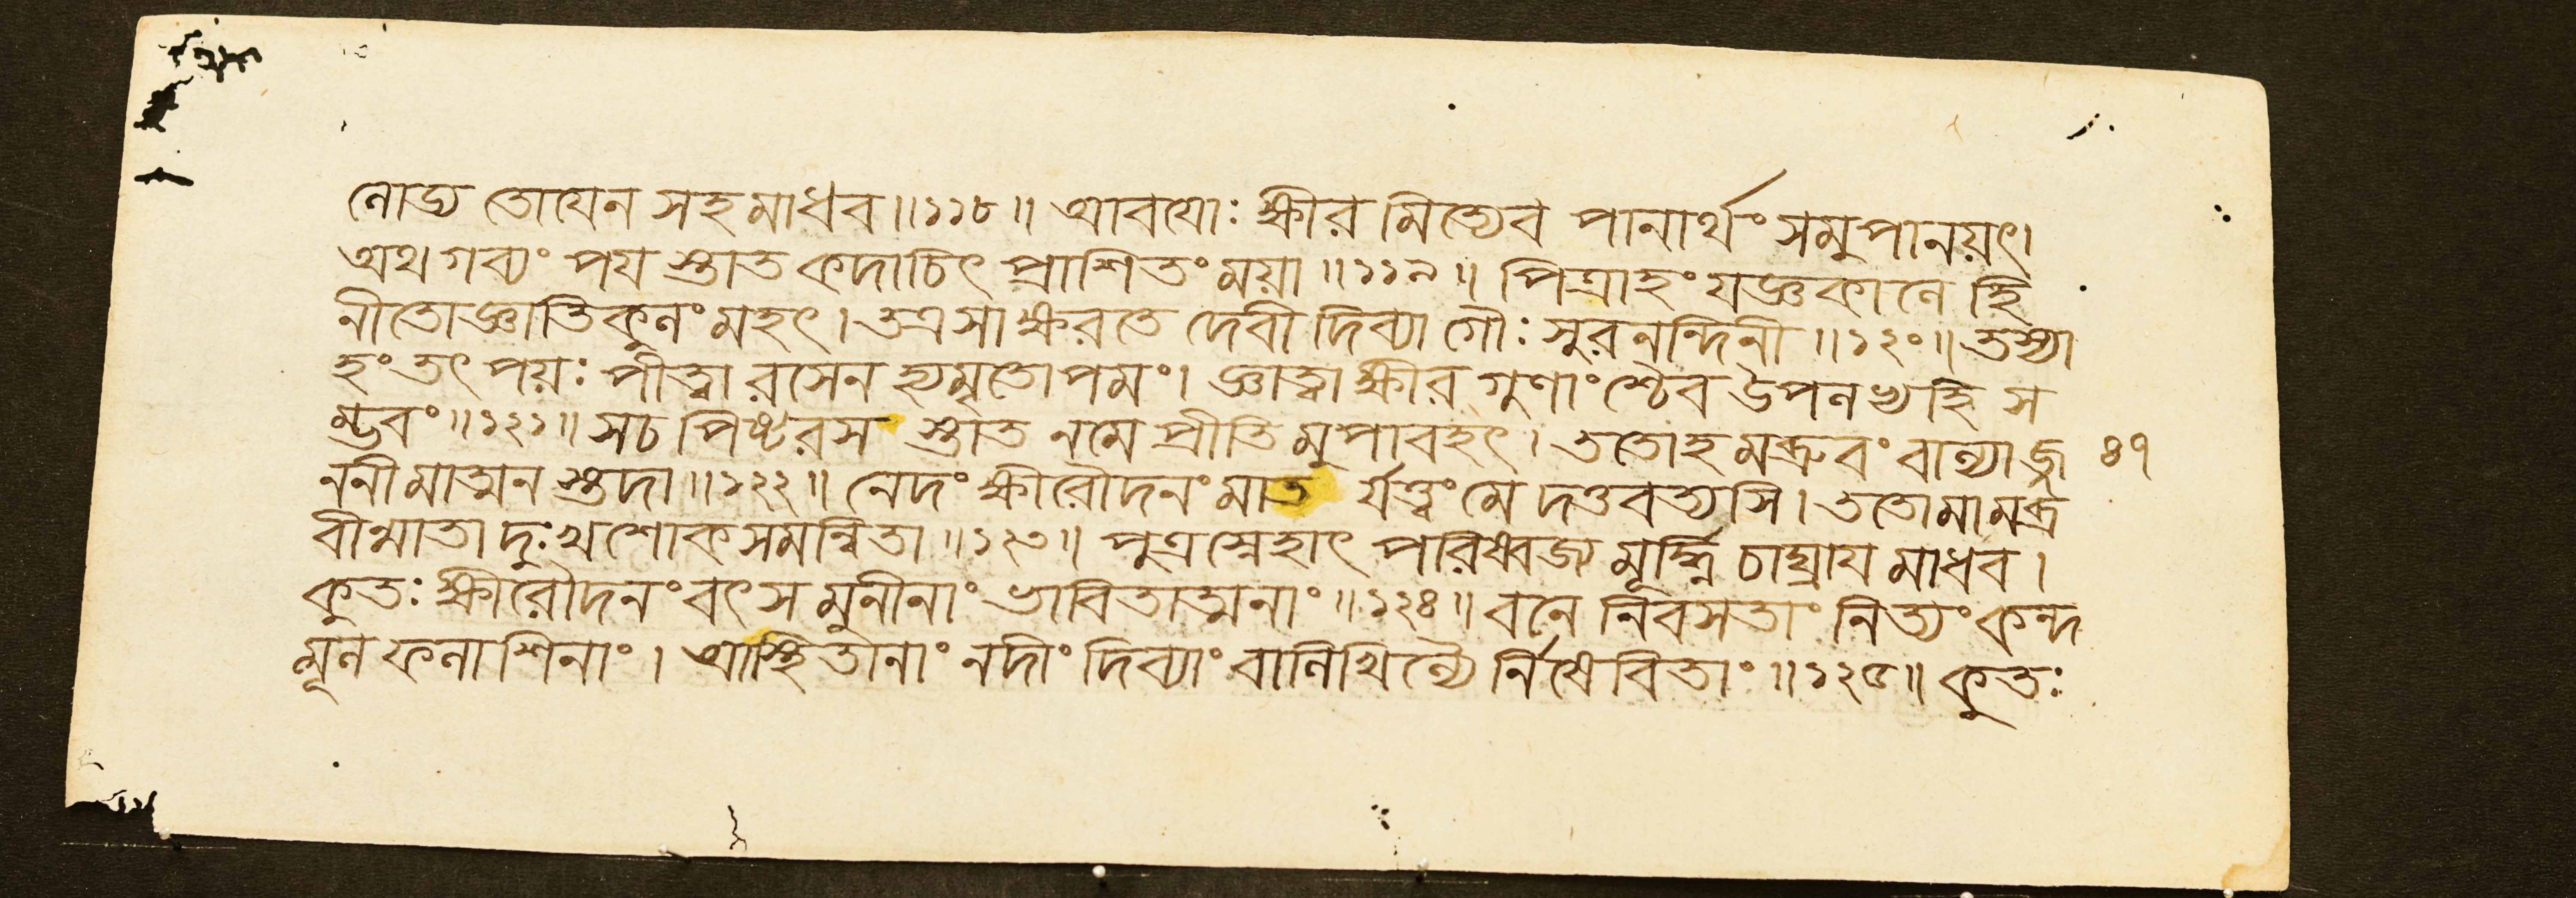 নোড্য তোযেন সহ মাধব॥১১৮॥ আবযোঃ ক্ষীর মিত্যেব পানার্থং সমুপানয়ৎ।
অথ গব্যং পয স্তাত কদাচিৎ প্রাশিতং ময়া॥১১৯॥ পিত্রাহং যজ্ঞকালে হি
নীতোজ্ঞাতিকুলং মহৎ। তত্র সা ক্ষরতে দেবী দিব্যা গৌঃ সুরনন্দিনী॥১২০॥ তস্যা
হং তৎ পয়ঃ পীত্বা রসেন হ্যমৃতোপমং। জ্ঞাত্বা ক্ষীর গুণাংশ্চৈব উপলভ্য হি স
ম্ভবং॥১২১॥ সচ পিষ্টরস স্তাত নমে প্রীতি মুপাবহৎ। ততোহ মব্রুবং বাল্যাজ্জ ৪৭
ননীমাত্মন স্তদা॥১২২॥ নেদং ক্ষীরৌদনং মাত র্যত্ত্বং মে দত্তবত্যসি। ততোমামব্র
বীন্মাতা দুঃখশোকসমন্বিতা॥১২৩॥ পুত্রস্নেহাৎ পরিষ্বজ্য মূর্ধ্নি চাঘ্রায মাধব।
কুতঃ ক্ষীরৌদনং বৎস মুনীনাং ভাবিতাত্মনাং॥১২৪॥ বনে নিবসতাং নিত্যং কন্দ
মূল ফলাশিনাং। আস্থিতানাং নদীং দিব্যাং বালিখিল্যৈ র্নিষেবিতাং॥১২৫॥ কুতঃ